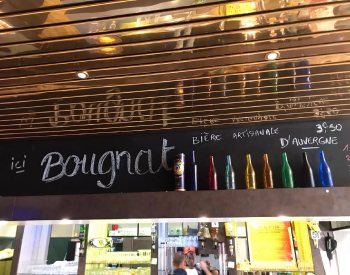 ici Bougnat
BIÈRE ARTISANALE
D'AUVERGNE
3€50